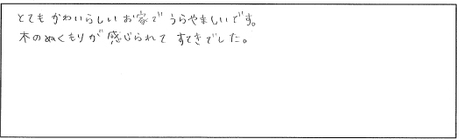 とても かわいらしい お家で うらやましいです。
木のぬくもりが 感じられて すてきでした。